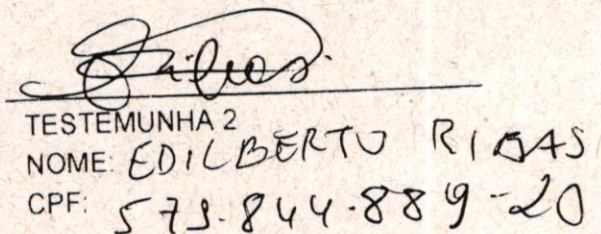 TESTEMUNHA 2
NOME: EDILBERTO RIBAS
CPF: 573.844.889-20